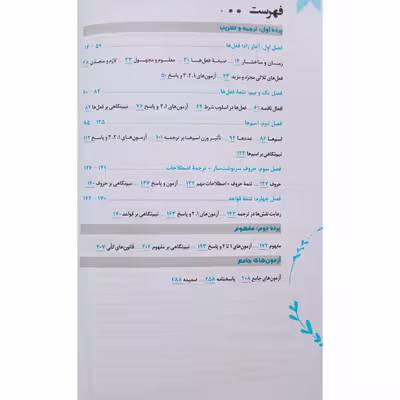 فهرست
پرده اول: ترجمه و تعریب
فصل اول: آغاز راه؛ فعل‌ها ۵۹ - ۱۲
زمان و ساختار ۱۲ ... صیغهٔ فعل‌ها ۲۰ ... معلوم و مجهول ۲۳ ... لازم و متعدی ۲۸
فعل‌های ثلاثی مجرّد و مزید ۳۳ ... آزمون‌های ۱، ۲، ۳ و پاسخ ۵۰
فصل یک و نیم: تتمهٔ فعل‌ها ۸۴ - ۶۰
افعال ناقصه ۶۱ ... فعل‌ها در اسلوب شرط ۶۹ ... آزمون‌های ۱، ۲ و پاسخ ۷۶ ... نیم‌نگاهی بر فعل‌ها ۸۲
فصل دوم: اسم‌ها ۱۲۵ - ۸۵
اسم‌ها ۸۶ ... عددها ۹۲ ... تأثیر وزن اسم‌ها بر ترجمه ۱۰۱ ... آزمون‌های ۱، ۲، ۳ و پاسخ ۱۱۲
نیم‌نگاهی بر اسم‌ها ۱۲۴
فصل سوم: حروف سرنوشت‌ساز + ترجمهٔ اصطلاحات ۱۴۱ - ۱۲۶
حروف ۱۲۷ ... تتمهٔ حروف + اصطلاحات مهم ۱۳۲ ... آزمون و پاسخ ۱۳۷ ... نیم‌نگاهی بر حروف ۱۴۰
فصل چهارم: تتمهٔ قواعد ۱۷۰ - ۱۴۲
رعایت نقش‌ها در ترجمه ۱۴۳ ... آزمون‌های ۱، ۲ و پاسخ ۱۶۳ ... نیم‌نگاهی بر قواعد ۱۷۰
پرده دوم: مفهوم
مفهوم ۱۷۲ ... آزمون‌های ۱ تا ۲ و پاسخ ۱۹۳ ... نیم‌نگاهی بر مفهوم ۲۰۶ ... قانون‌های کلّی ۲۰۷
آزمون‌های جامع
آزمون‌های جامع ۲۰۸ ... پاسخنامه ۲۵۸ ... ضمیمه ۲۸۸